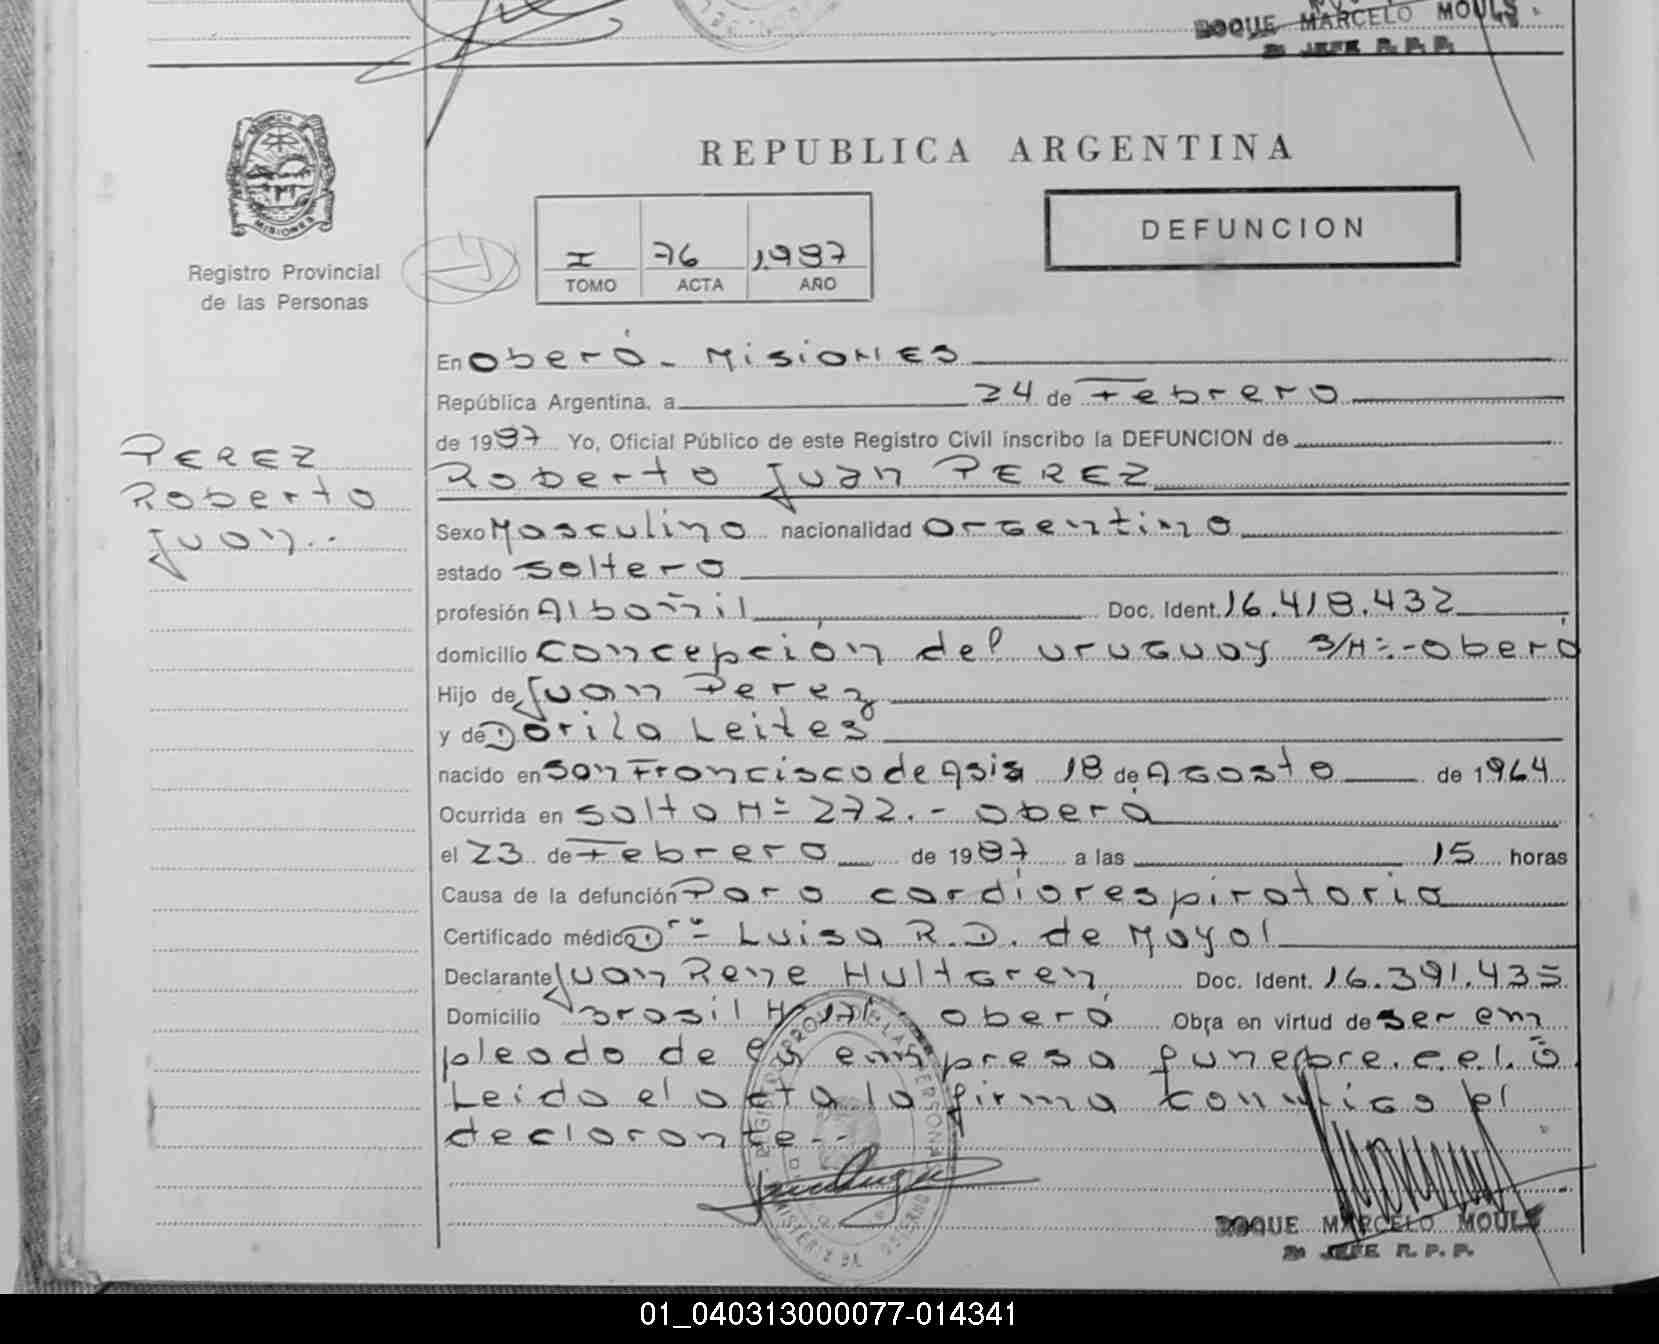 ROQUE MARCELO MOULS
2º JEFE R.P.P.
PROVINCIA DE
MISIONES
REPUBLICA ARGENTINA
Registro Provincial
de las Personas
I 76 1.987
TOMO ACTA AÑO
DEFUNCION
En Oberá - Misiones
República Argentina, a 24 de Febrero
de 1987 Yo, Oficial Público de este Registro Civil inscribo la DEFUNCION de
PEREZ
Roberto
Juan..
Roberto Juan PEREZ
Sexo Masculino nacionalidad argentino
estado soltero
profesión Albañil Doc. Ident. 16.418.432
domicilio concepción del uruguay S/Nº.-Oberá
Hijo de Juan Perez
y de Dorila Leites
nacido en San Francisco de Asis 18 de Agosto de 1964
Ocurrida en salta Nº 272.- Oberá
el 23 de Febrero de 1987 a las 15 horas
Causa de la defunción Paro cardiorespiratorio
Certificado médico Drª Luisa R.D. de Mayol
Declarante Juan Rene Hultgren Doc. Ident. 16.391.435
Domicilio Brasil Nº 171 - Oberá Obra en virtud de ser em
pleado de empresa funebre.
Leida el acta la firma conmigo el
declarante.--
ROQUE MARCELO MOULS
2º JEFE R.P.P.
01_040313000077-014341